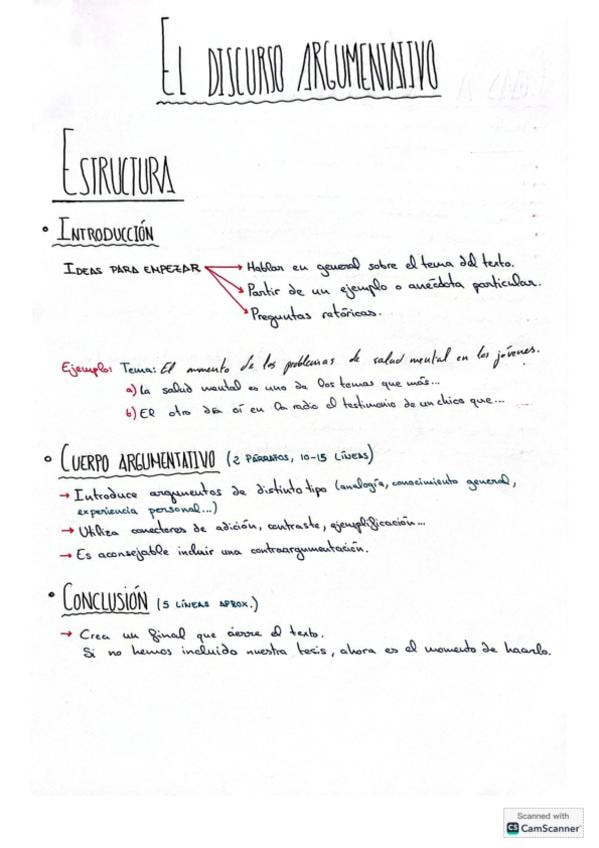 EL DISCURSO ARGUMENTATIVO
ESTRUCTURA
• INTRODUCCIÓN
IDEAS PARA EMPEZAR → Hablar en general sobre el tema del texto.
→ Partir de un ejemplo o anécdota particular.
→ Preguntas retóricas.
Ejemplo: Tema: El aumento de los problemas de salud mental en los jóvenes.
a) La salud mental es uno de los temas que más...
b) El otro día oí en la radio el testimonio de un chico que...
• CUERPO ARGUMENTATIVO (2 PÁRRAFOS, 10-15 LÍNEAS)
→ Introduce argumentos de distinto tipo (analogía, conocimiento general,
experiencia personal...)
→ Utiliza conectores de adición, contraste, ejemplificación...
→ Es aconsejable incluir una contraargumentación.
• CONCLUSIÓN (5 LÍNEAS APROX.)
→ Crea un final que cierre el texto.
Si no hemos incluido nuestra tesis, ahora es el momento de hacerlo.
Scanned with
CS CamScanner